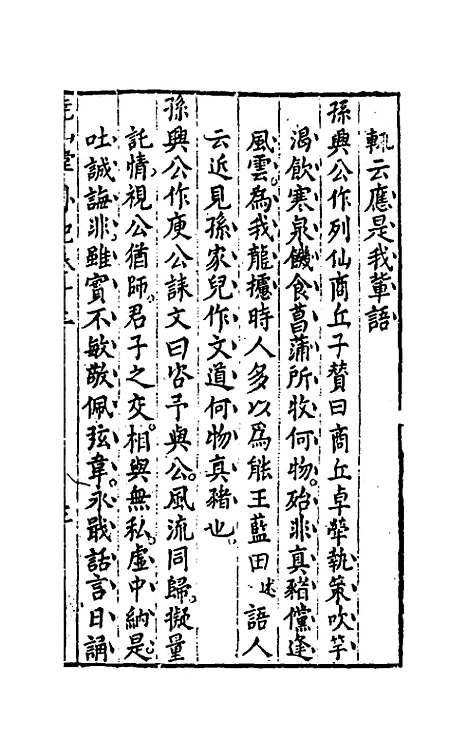 輒云應是我輩語
孫興公作列仙商丘子贊曰商丘卓犖執策吹竽
渴飲寒泉饑食菖蒲所牧何物殆非真豬儻逢
風雲爲我龍攄時人多以爲能王藍田述語人
云近見孫家兒作文道何物真豬也
孫興公作庾公誄文曰咨予與公風流同歸擬量
託情視公猶師君子之交相與無私虛中納是
吐誠誨非雖實不敏敬佩弦韋永戢話言口誦